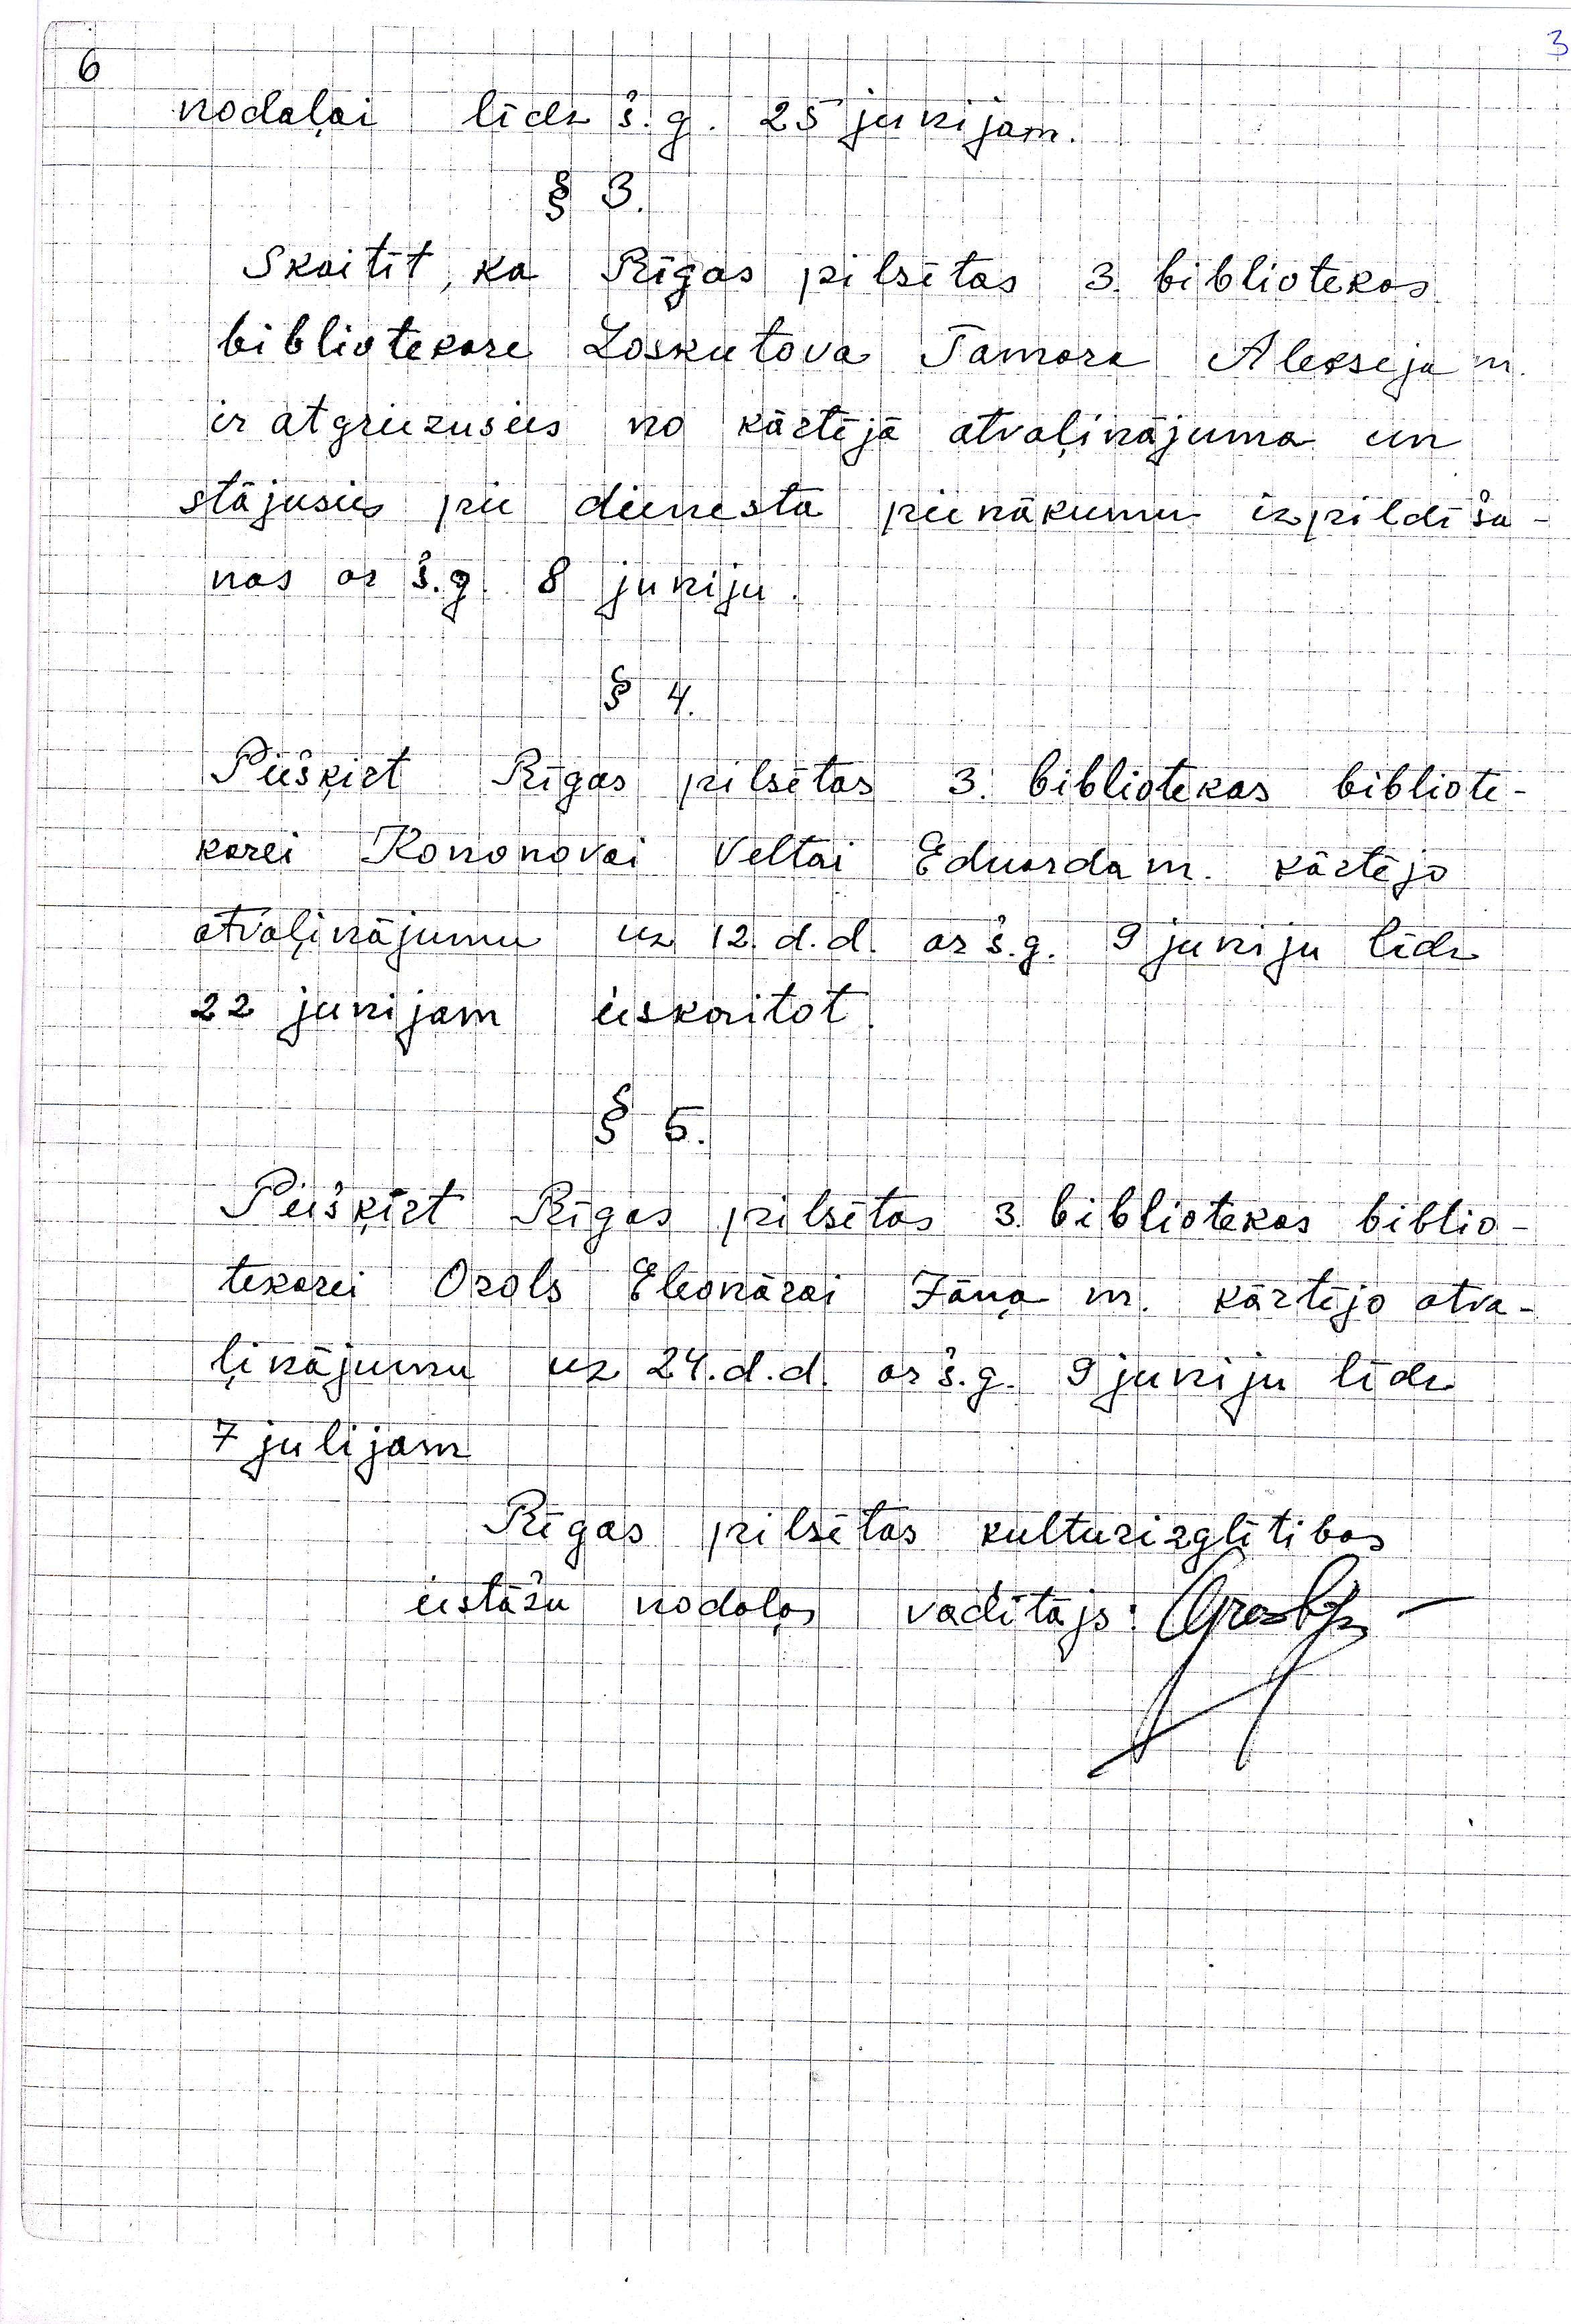 6
3
nodaļai līdz š.g. 25 junijam.
§ 3.
Skaitīt, ka Rīgas pilsētas 3. bibliotekas
bibliotekare Loskutova Tamara Alekseja m.
ir atgriezusies no kārtējā atvaļinājuma un
stājusies pie dienesta pienākumu izpildīša-
nas ar š.g. 8 juniju.
§ 4.
Piešķirt Rīgas pilsētas 3. bibliotekas bibliote-
karei Kononovai Veltai Eduarda m. kārtējo
atvaļinājumu uz 12. d.d. ar š.g. 9 juniju līdz
22 junijam ieskaitot.
§ 5.
Piešķirt Rīgas pilsētas 3. bibliotekas biblio-
tekarei Ozols Eleonārai Jāņa m. kārtējo atva-
ļinājumu uz 24. d.d. ar š.g. 9 juniju līdz
7 julijam
Rīgas pilsētas kulturizglītibas
iestāžu nodaļas vadītājs: